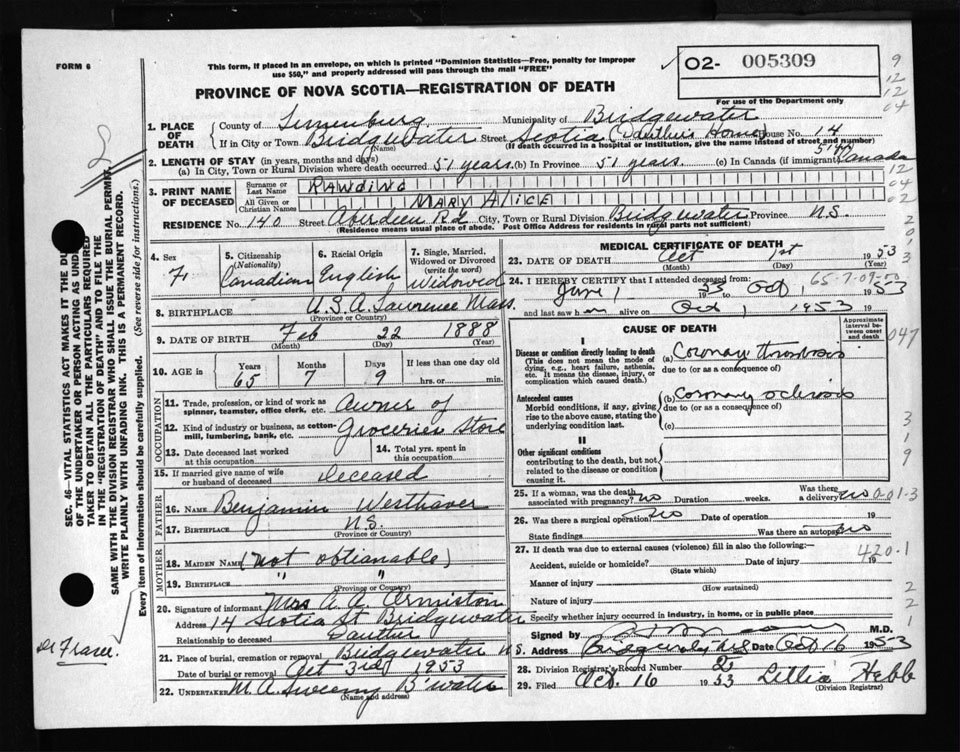 FORM 6
This form, if placed in an envelope, on which is printed "Dominion Statistics—Free, penalty for improper
use $50," and properly addressed will pass through the mail "FREE"
O2- 005309
For use of the Department only
PROVINCE OF NOVA SCOTIA—REGISTRATION OF DEATH
9
12
12
04
1. PLACE OF DEATH
County of Lunenburg Municipality of Bridgewater
If in City or Town Bridgewater Street Scotia (Dauthers Home) House No. 14
(Name) (If death occurred in a hospital or institution, give the name instead of street and number)
2. LENGTH OF STAY (in years, months and days)
(a) In City, Town or Rural Division where death occurred 51 years (b) In Province 51 years. (c) In Canada (if immigrant) Canada
3. PRINT NAME OF DECEASED
Surname or Last Name RAWDING
All Given or Christian Names MARY ALICE
12
04
02
RESIDENCE No. 140 Street Aberdeen Rd City, Town or Rural Division Bridgewater Province N.S.
(Residence means usual place of abode. Post Office Address for residents in rural parts not sufficient)
4. Sex
F
5. Citizenship (Nationality)
Canadian
6. Racial Origin
English
7. Single, Married, Widowed or Divorced (write the word)
Widowed
8. BIRTHPLACE U.S.A. Lawrence Mass.
(Province or Country)
9. DATE OF BIRTH Feb 22 1888
(Month) (Day) (Year)
10. AGE in
Years Months Days If less than one day old
65 7 9 hrs. or min.
OCCUPATION
11. Trade, profession, or kind of work as
spinner, teamster, office clerk, etc. Owner of
12. Kind of industry or business, as cotton-
mill, lumbering, bank, etc. Groceries Store
13. Date deceased last worked
at this occupation
14. Total yrs. spent in
this occupation
15. If married give name of wife
or husband of deceased deceased
FATHER
16. NAME Benjamin Westhaver
17. BIRTHPLACE N.S.
(Province or Country)
MOTHER
18. MAIDEN NAME (not obtianable)
19. BIRTHPLACE " "
(Province or Country)
20. Signature of informant Mrs A. A. Ormiston
Address 14 Scotia St Bridgewater
Relationship to deceased Dauther
21. Place of burial, cremation or removal Bridgewater N.S.
Date of burial or removal Oct 3rd 1953
22. UNDERTAKER M.A. Sweeny B'water
(Name and address)
MEDICAL CERTIFICATE OF DEATH
23. DATE OF DEATH Oct 1st 1953
(Month) (Day) (Year)
24. I HEREBY CERTIFY that I attended deceased from: 65-7-09-00
June 1 53 to Oct 1 1953
and last saw h alive on Oct 1 1953 19
CAUSE OF DEATH
Approximate interval between onset and death
047
I
Disease or condition directly leading to death
(This does not mean the mode of
dying, e.g., heart failure, asthenia,
etc. It means the disease, injury, or
complication which caused death.)
(a) Coronary thrombosis
due to (or as a consequence of)
Antecedent causes
Morbid conditions, if any, giving
rise to the above cause, stating the
underlying condition last.
(b) Coronary sclerosis
due to (or as a consequence of)
(c)
II
Other significant conditions
contributing to the death, but not
related to the disease or condition
causing it.
3
1
9
25. If a woman, was the death
associated with pregnancy? no Duration weeks. Was there
a delivery? no 001-3
26. Was there a surgical operation? no Date of operation 19
State findings Was there an autopsy? no
27. If death was due to external causes (violence) fill in also the following:— 420.1
Accident, suicide or homicide? Date of injury 19
(State which)
Manner of injury
(How sustained)
Nature of injury
Specify whether injury occurred in industry, in home, or in public place
2
2
1
Signed by M.D.
Address Bridgewater NS Date Oct 16 1953
28. Division Registrar's Record Number 2
29. Filed Oct. 16 1953 Lillia Hebb
(Division Registrar)
SEC. 46—VITAL STATISTICS ACT MAKES IT THE DU
OF THE UNDERTAKER OR PERSON ACTING AS UNDER-
TAKER TO OBTAIN ALL THE PARTICULARS REQUIRED
IN THE "REGISTRATION OF DEATH" AND TO FILE THE
SAME WITH THE DIVISION REGISTRAR WHO SHALL ISSUE THE BURIAL PERMIT.
WRITE PLAINLY WITH UNFADING INK. THIS IS A PERMANENT RECORD.
Every item of information should be carefully supplied. (See reverse side for instructions.)
Dr Fraser.